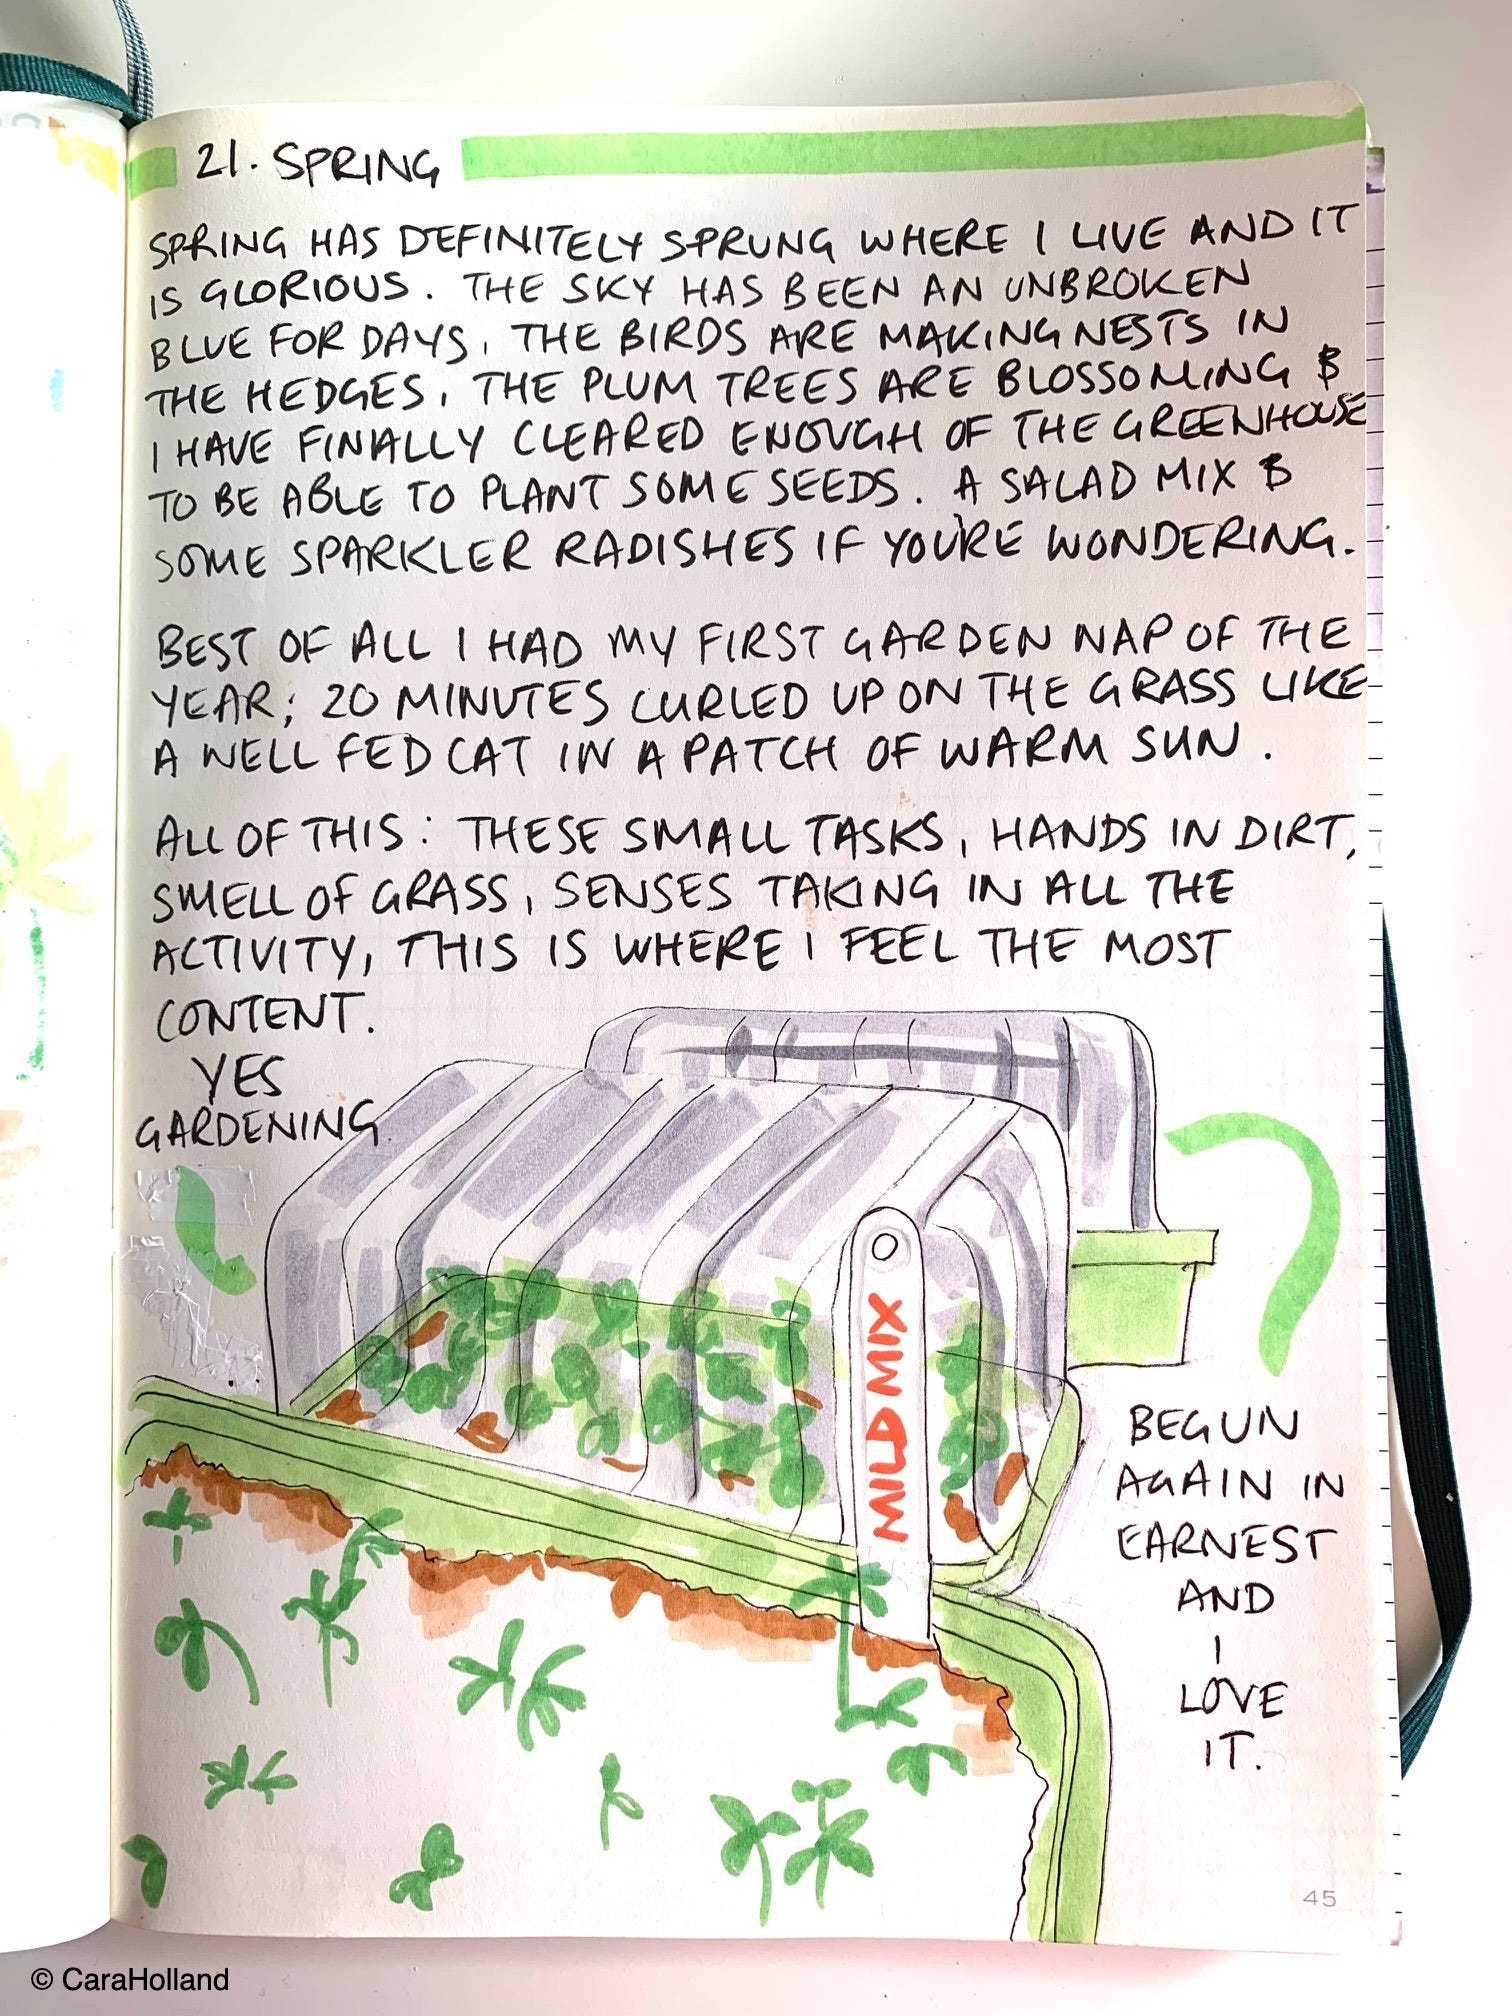 21. SPRING
SPRING HAS DEFINITELY SPRUNG WHERE I LIVE AND IT
IS GLORIOUS. THE SKY HAS BEEN AN UNBROKEN
BLUE FOR DAYS, THE BIRDS ARE MAKING NESTS IN
THE HEDGES, THE PLUM TREES ARE BLOSSOMING &
I HAVE FINALLY CLEARED ENOUGH OF THE GREENHOUSE
TO BE ABLE TO PLANT SOME SEEDS. A SALAD MIX &
SOME SPARKLER RADISHES IF YOU'RE WONDERING.
BEST OF ALL I HAD MY FIRST GARDEN NAP OF THE
YEAR; 20 MINUTES CURLED UP ON THE GRASS LIKE
A WELL FED CAT IN A PATCH OF WARM SUN.
ALL OF THIS: THESE SMALL TASKS, HANDS IN DIRT,
SMELL OF GRASS, SENSES TAKING IN ALL THE
ACTIVITY, THIS IS WHERE I FEEL THE MOST
CONTENT.
YES
GARDENING
MILD MIX
BEGUN
AGAIN IN
EARNEST
AND
I
LOVE
IT.
45
© CaraHolland